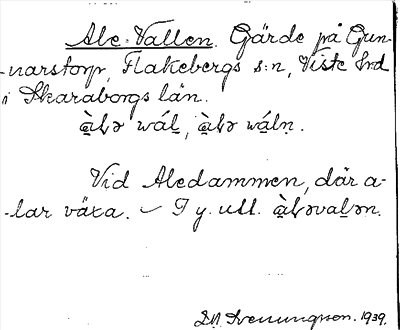 Ale-Vallen. Gärde på Gun-
-narstorp, Flakebergs s:n, Viste hrd
i Skaraborgs län.
àlə wál, àlə wáln.
Vid Aledammen, där a-
-lar växa. – I y. utt. àləvalən.
Svenungsson. 1939.